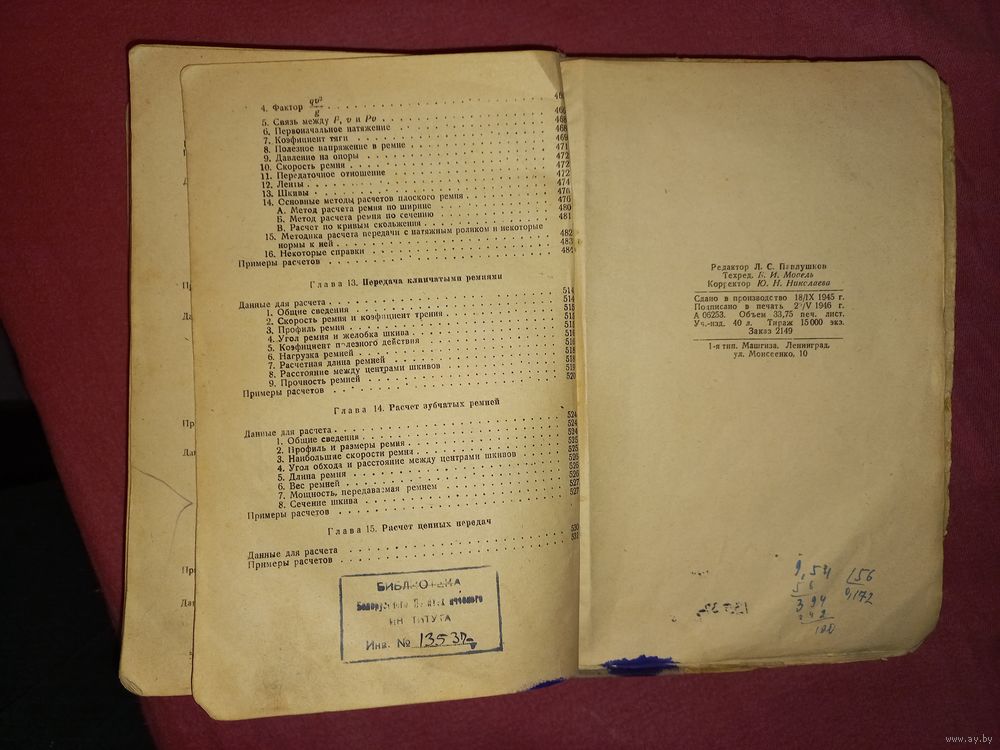 4. Фактор qv²/g . . . 46
5. Связь между F, v и Pv . . . 466
6. Первоначальное натяжение . . . 468
7. Коэфициент тяги . . . 468
8. Полезное напряжение в ремне . . . 469
9. Давление на опоры . . . 471
10. Скорость ремня . . . 472
11. Передаточное отношение . . . 472
12. Ленты . . . 472
13. Шкивы . . . 474
14. Основные методы расчетов плоского ремня . . . 476
А. Метод расчета ремня по ширине . . . 476
Б. Метод расчета ремня по сечению . . . 480
В. Расчет по кривым скольжения . . . 481
15. Методика расчета передачи с натяжным роликом и некоторые
нормы к ней . . . 482
16. Некоторые справки . . . 483
Примеры расчетов . . . 484
Глава 13. Передача клинчатыми ремнями
Данные для расчета . . . 514
1. Общие сведения . . . 514
2. Скорость ремня и коэфициент трения . . . 515
3. Профиль ремня . . .
4. Угол ремня и желобка шкива . . .
5. Коэфициент полезного действия . . . 516
6. Нагрузка ремней . . . 516
7. Расчетная длина ремней . . . 518
8. Расстояние между центрами шкивов . . . 518
9. Прочность ремней . . . 519
Примеры расчетов . . . 520
Глава 14. Расчет зубчатых ремней
Данные для расчета . . . 524
1. Общие сведения . . . 524
2. Профиль и размеры ремня . . . 524
3. Наибольшие скорости ремня . . . 525
4. Угол обхода и расстояние между центрами шкивов . . . 525
5. Длина ремня . . . 526
6. Вес ремней . . . 526
7. Мощность, передаваемая ремнем . . . 526
8. Сечение шкива . . . 527
Примеры расчетов . . . 527
Глава 15. Расчет цепных передач
Данные для расчета . . . 530
Примеры расчетов . . . 531
БИБЛИОТЕКА
ИНСТИТУТА
Инв. № 13532
Редактор Л. С. Павлушков
Техред. Б. И. Мосель
Корректор Ю. Н. Николаева
Сдано в производство 18/IX 1945 г.
Подписано в печать /V 1946 г.
А 06253. Объем 33,75 печ. лист.
Уч.-изд. 40 л. Тираж 15 000 экз.
Заказ 2149
1-я тип. Машгиза, Ленинград,
ул. Моисеенко, 10
156
0,172
394
100
www.ay.by